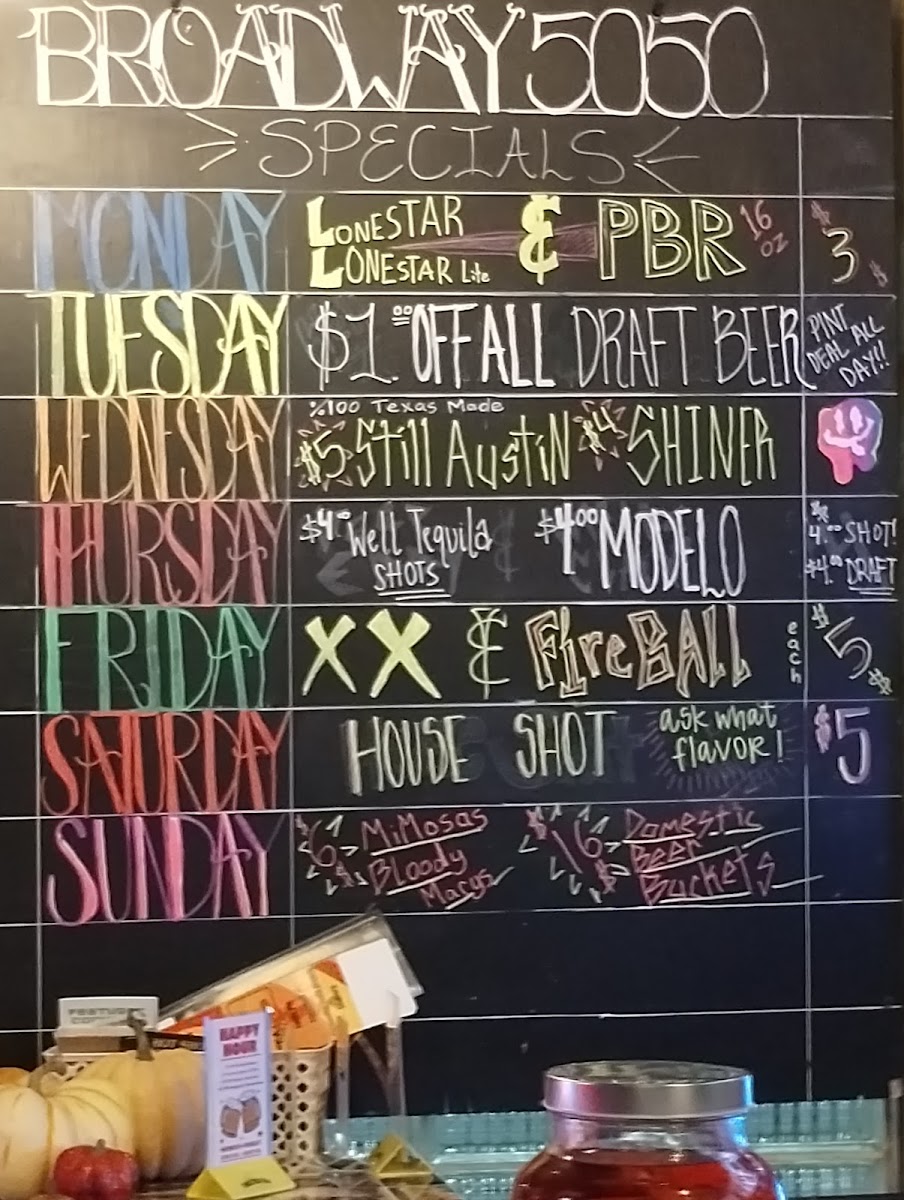 BROADWAY 5050
SPECIALS
MONDAY LONESTAR & PBR 16 OZ $3$
LONESTAR Lite
TUESDAY $1.00 OFF ALL DRAFT BEER PINT DEAL ALL DAY!!
%100 Texas Made
WEDNESDAY $5 Still Austin $4 SHINER
THURSDAY $4.00 Well Tequila SHOTS $4.00 MODELO $4.00 SHOT! $4.00 DRAFT
FRIDAY XX & FireBALL each $5$
SATURDAY HOUSE SHOT ask what flavor! $5
SUNDAY $6$ MiMosas $16$ Domestic
Bloody Beer
Marys Buckets
HAPPY
HOUR